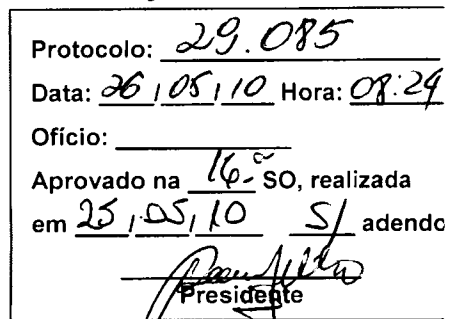 Protocolo: 29.085
Data: 26/05/10 Hora: 08:29
Ofício:
Aprovado na 16.ª SO, realizada
em 25/05/10 S/ adendo
Presidente